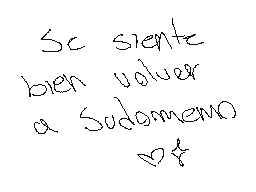 Se siente
bien volver
a Sudomemo